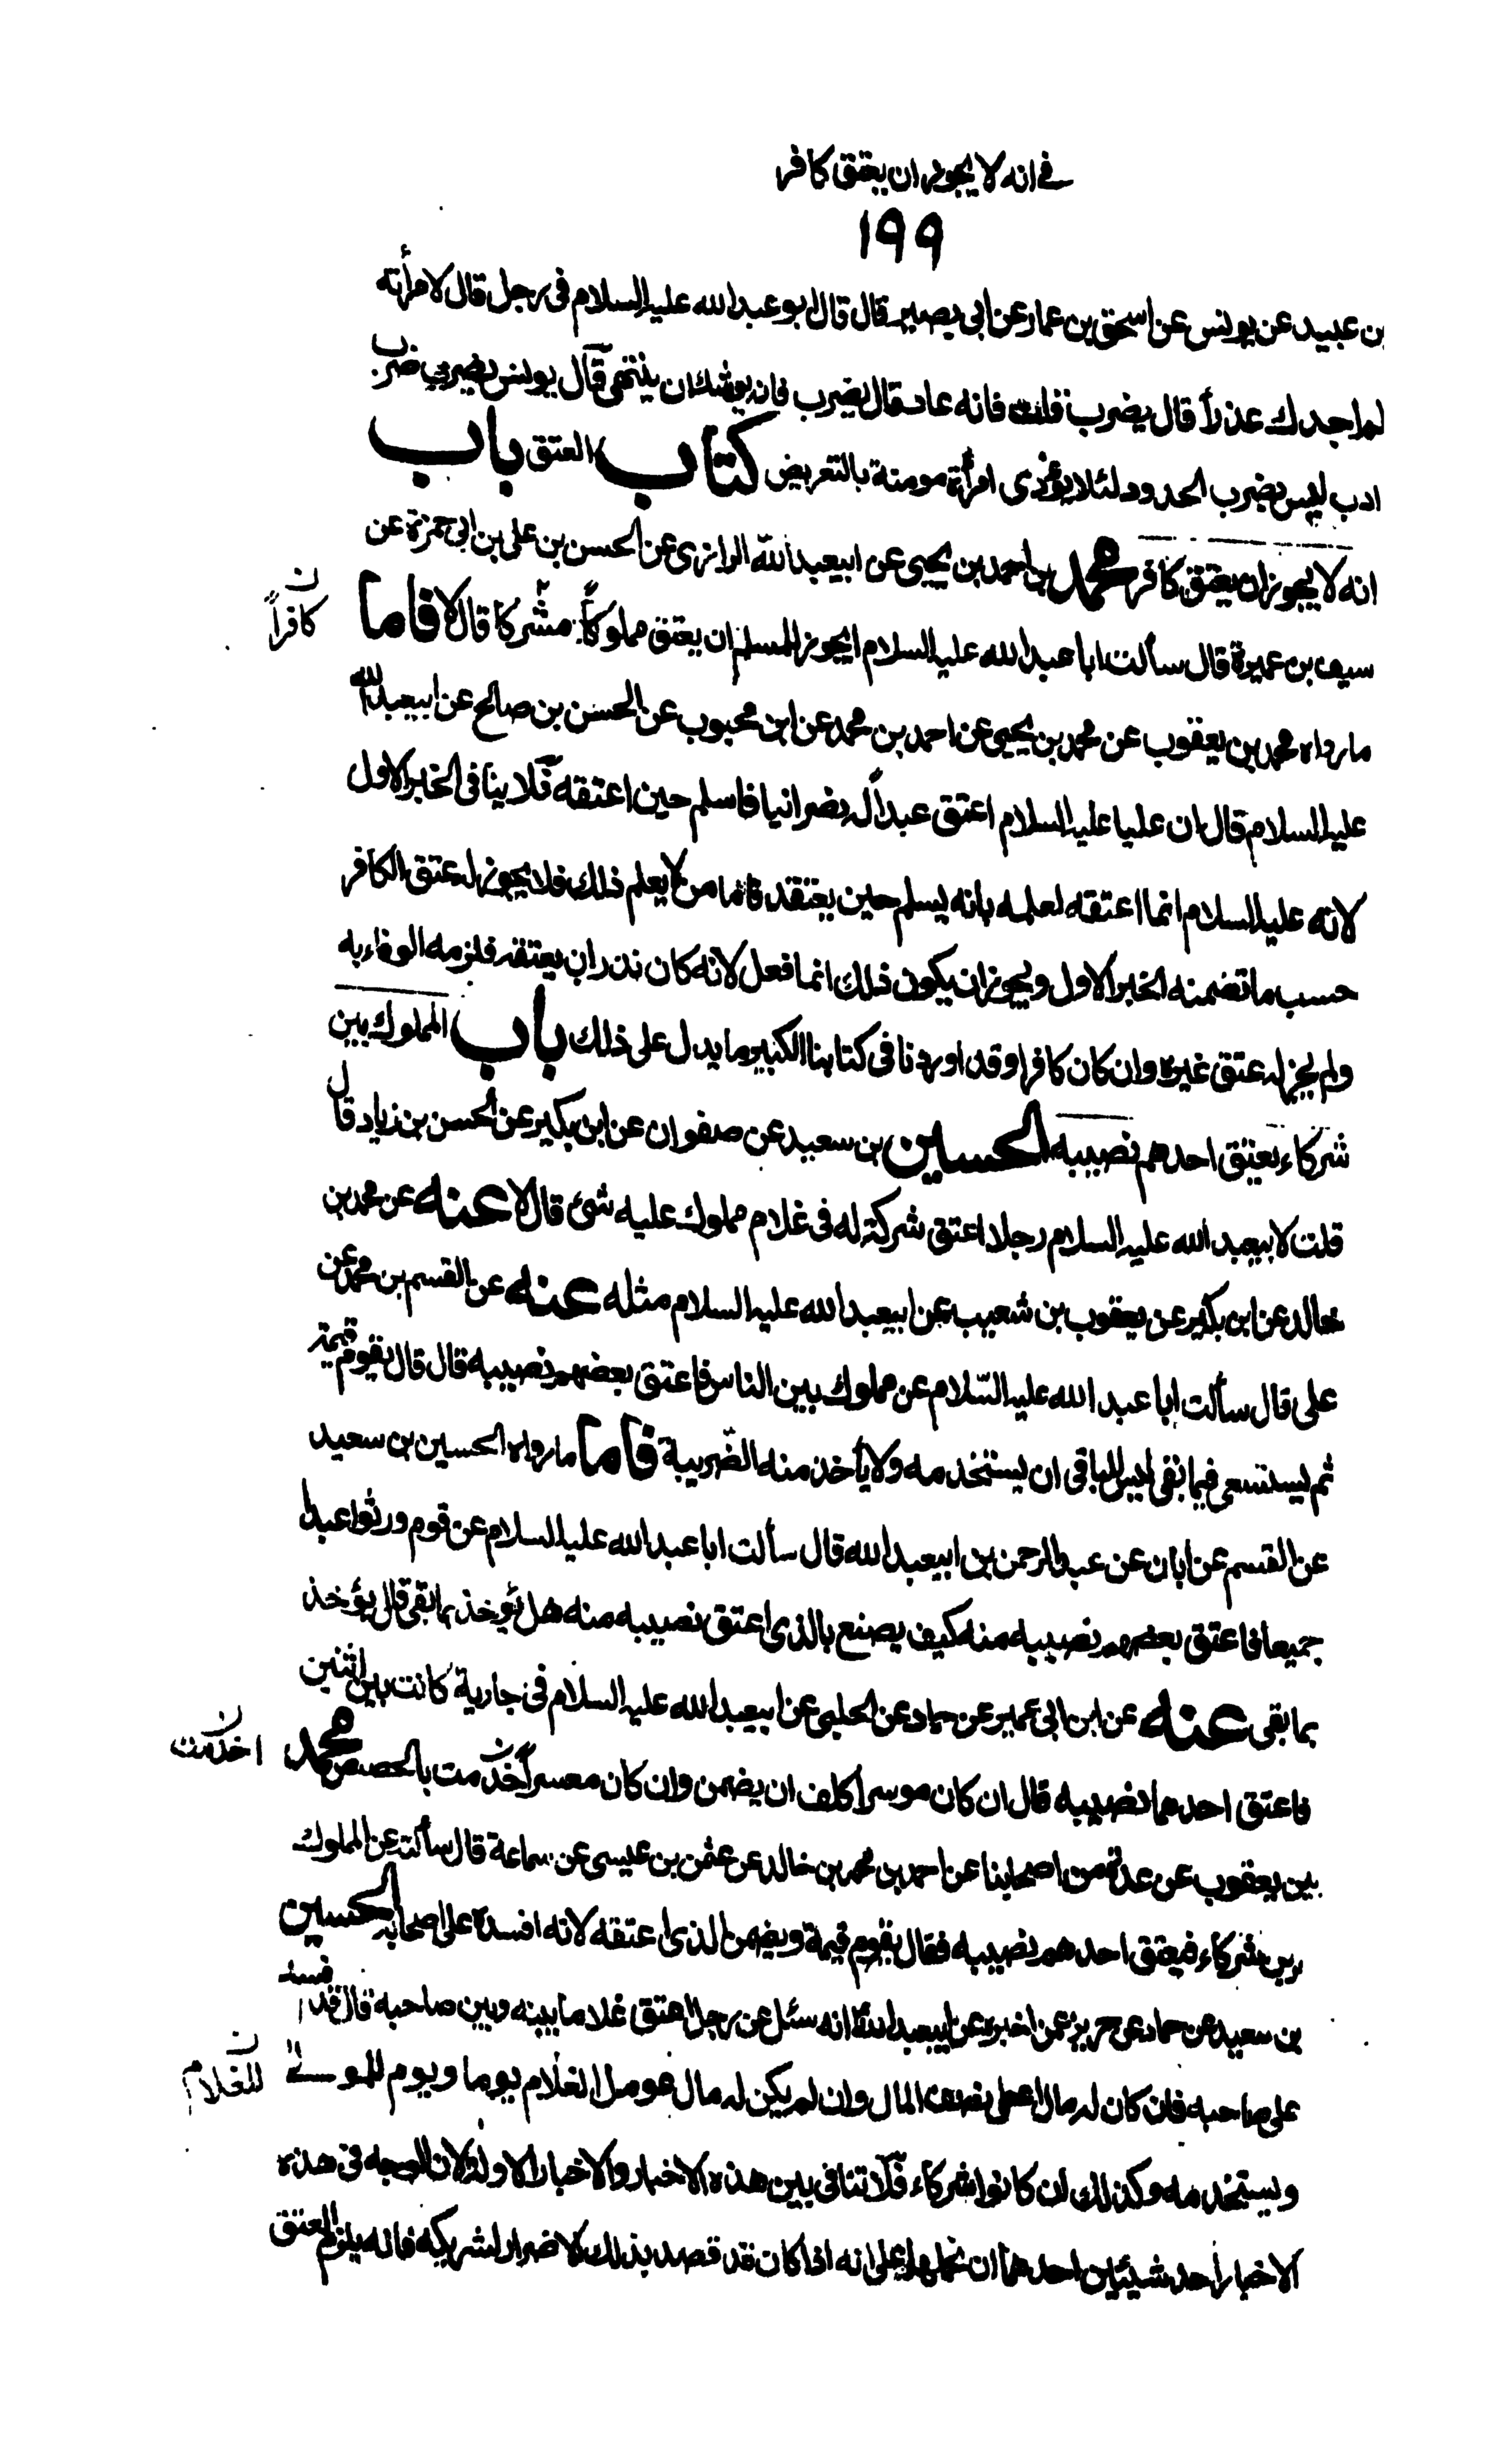 في انه لا يجوز ان يعتق كافر
١٩٩
بن عبيد عن يونس عن اسحق بن عمار عن ابي بصير قال قال ابو عبد الله عليه السلام في رجل قال لامرأته
لم اجدك عذرأ قال يضرب قلت فانه عاد قال يضرب فانه يوشك ان ينتهى قال يونس يضرب ضرب
ادب ليس بضرب الحدود لئلا يؤذى امرأة مومنة بالتعريض كتاب العتق باب
انه لا يجوز ان يعتق كافر محمد بن احمد بن يحيى عن ابيعبد الله الرازى عن الحسن بن على بن ابى حمزة عن
سيف بن عميرة قال سألت ابا عبد الله عليه السلام ايجوز للمسلم ان يعتق مملوكاً مشركا قال لا فاما
كافراً ن
ما رواه محمد بن يعقوب عن محمد بن يحيى عن احمد بن محمد عن ابن محبوب عن الحسن بن صالح عن ابيعبد الله
عليه السلام قال ان عليا عليه السلام اعتق عبداً له نصرانيا فاسلم حين اعتقه فلا ينافى الخبر الاول
لانه عليه السلام انما اعتقه لعلمه بانه يسلم حين يعتقه فاما من لا يعلم ذلك فلا يجوز له عتق الكافر
حسب ما تضمنه الخبر الاول ويجوز ان يكون ذلك انما فعل لانه كان نذر ان يعتقه فلزمه الوفاء به
ولم يجز له عتق غيره وان كان كافرا وقد اوردنا في كتابنا الكبير ما يدل على ذلك باب المملوك بين
شركاء يعتق احدهم نصيبه الحسين بن سعيد عن صفوان عن ابن بكير عن الحسن بن زياد قال
قلت لابيعبد الله عليه السلام رجلا اعتق شركة له في غلام مملوك عليه شئ قال لا عنه عن محمد بن
خالد عن ابن بكير عن يعقوب بن شعيب عن ابيعبد الله عليه السلام مثله عنه عن القسم بن محمد عن
على قال سألت ابا عبد الله عليه السّلام عن مملوك بين الناس فاعتق بعضهم نصيبه قال قال يقوم قيمة
ثم يستسعى فيما بقى ليس للباقى ان يستخدمه ولا يأخذ منه الضّريبة فاما ما رواه الحسين بن سعيد
عن القسم عن ابان عن عبد الرحمن بن ابيعبد الله قال سألت ابا عبد الله عليه السلام عن قوم ورثوا عبدا
جميعا فاعتق بعضهم نصيبه منه كيف يصنع بالذى اعتق نصيبه منه هل يؤخذ بما بقى قال يؤخذ
بما بقى عنه عن ابن ابى عمير عن حماد عن الحلبى عن ابيعبد الله عليه السلام في جارية كانت بين اثنين
فاعتق احدهما نصيبه قال ان كان موسراً كلف ان يضمن وان كان معسراً أخذمت بالحصص محمد
اخدمت ن
بن يعقوب عن عدة من اصحابنا عن احمد بن محمد بن خالد عن عثمن بن عيسى عن سماعة قال سألته عن المملوك
بين شركاء فيعتق احدهم نصيبه فقال يقوم قيمة ويضمن الذى اعتقه لانه افسده على اصحابه الحسين
بن سعيد عن حماد عن حريز عمن اخبره عن ابيعبد الله انه سئل عن رجل اعتق غلاما بينه وبين صاحبه قال قد افسد
على صاحبه فان كان له مال اعطى نصف المال وان لم يكن له مال عومل الغلام يوما ويوم للمولى
للغلام ن
ويستخدمه وكذلك ان كانوا شركاء فلا تنافى بين هذه الاخبار والاخبار الاولة لان الوجه في هذه
الاخبار احد شيئين احدهما ان نحملها على انه اذا كان قد قصد بذلك الاضرار لشريكه فانه يلزم العتق